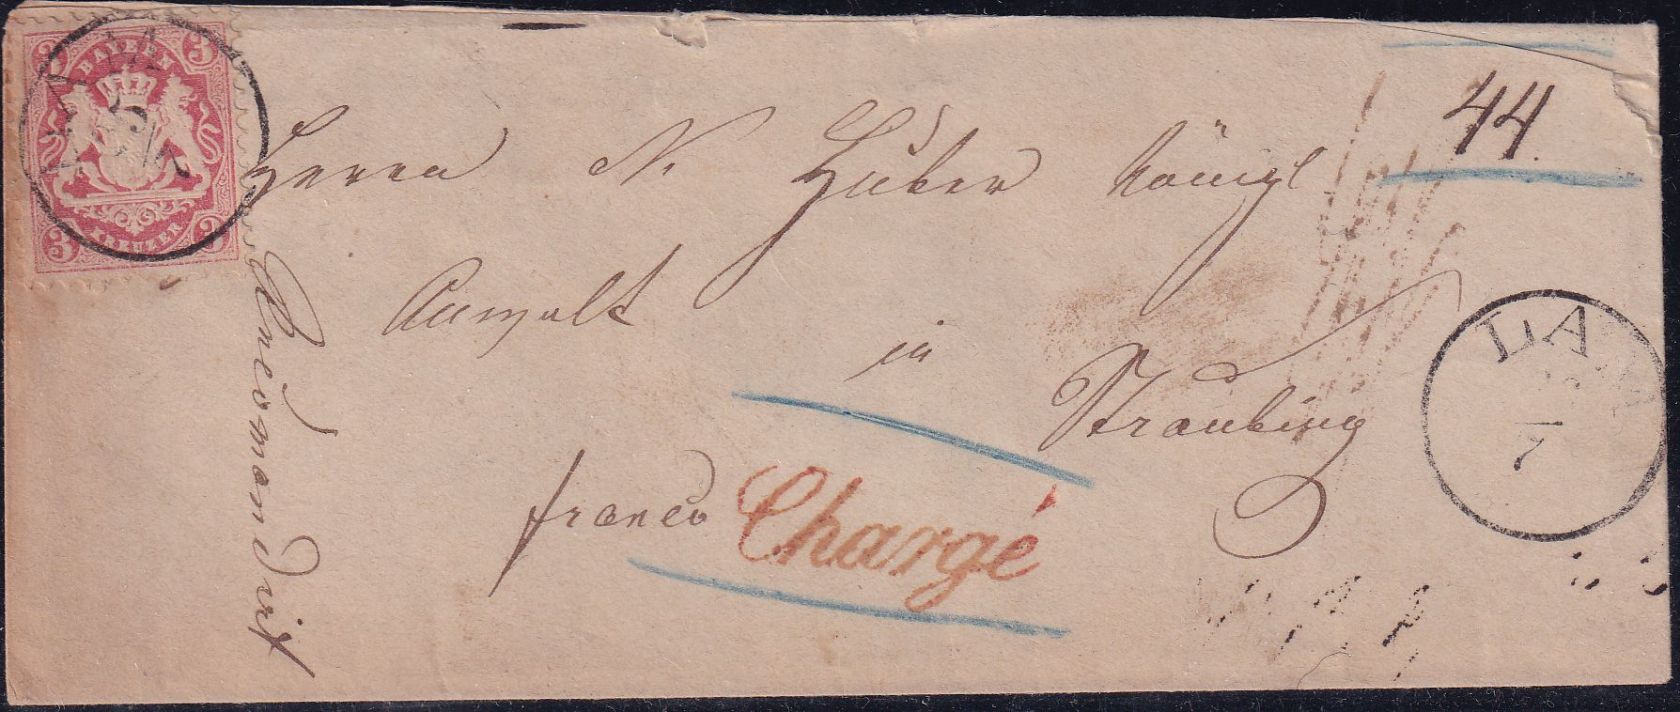 3 3
BAYERN
KREUZER
3 3
LAM
5/7
44.
Herrn N. Huber königl
Anwalt
in
Straubing
franco
Chargé
Recomandirt
LAM
7